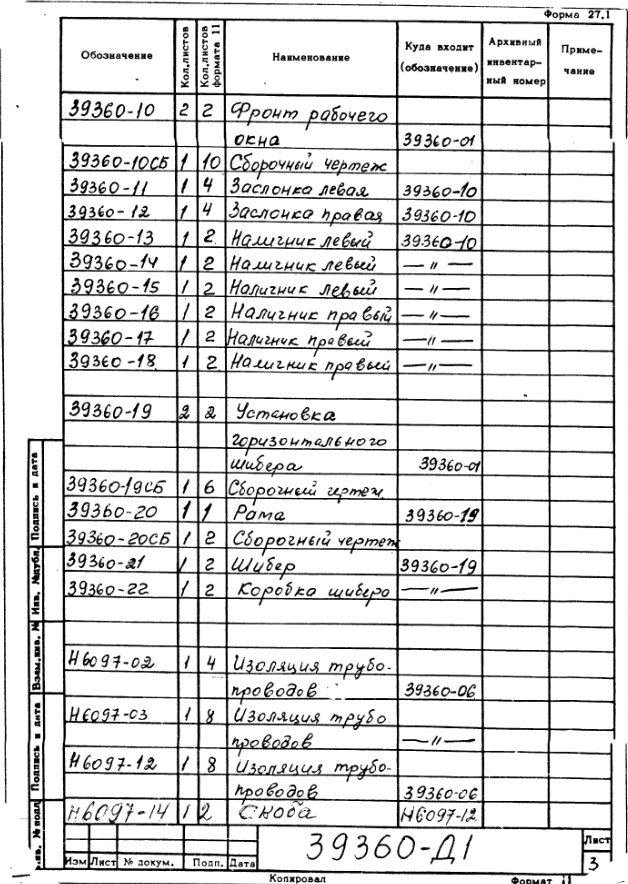 Форма 27.1
Обозначение Кол.листов Кол.листов формата 11 Наименование Куда входит (обозначение) Архивный инвентарный номер Примечание
39360-10 2 2 Фронт рабочего
окна 39360-01
39360-10СБ 1 10 Сборочный чертеж
39360-11 1 4 Заслонка левая 39360-10
39360-12 1 4 Заслонка правая 39360-10
39360-13 1 2 Наличник левый 39360-10
39360-14 1 2 Наличник левый —〃—
39360-15 1 2 Наличник левый —〃—
39360-16 1 2 Наличник правый —〃—
39360-17 1 2 Наличник правый —〃—
39360-18 1 2 Наличник правый —〃—
39360-19 2 2 Установка
горизонтального
шибера 39360-01
39360-19СБ 1 6 Сборочный чертеж
39360-20 1 1 Рама 39360-19
39360-20СБ 1 2 Сборочный чертеж
39360-21 1 2 Шибер 39360-19
39360-22 1 2 Коробка шибера —〃—
Н6097-02 1 4 Изоляция трубо-
проводов 39360-06
Н6097-03 1 8 Изоляция трубо
проводов —〃—
Н6097-12 1 8 Изоляция трубо-
проводов 39360-06
Н6097-14 1 2 Скоба Н6097-12
Подпись и дата
Инв. №дубл.
Взам.инв. №
Подпись и дата
инв. №подл
39360-Д1
Лист
3
Изм Лист № докум. Подп. Дата
Копировал Формат 11